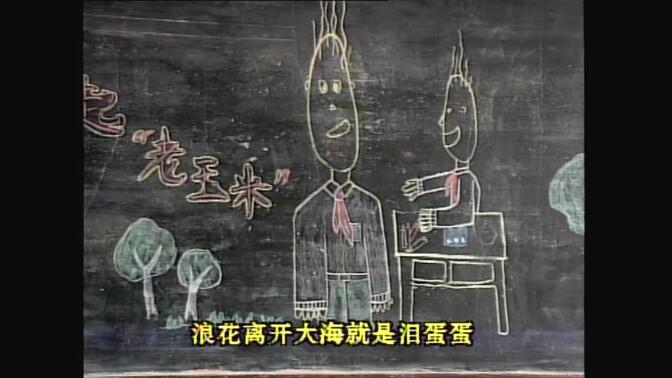 起
“老玉米”
浪花离开大海就是泪蛋蛋